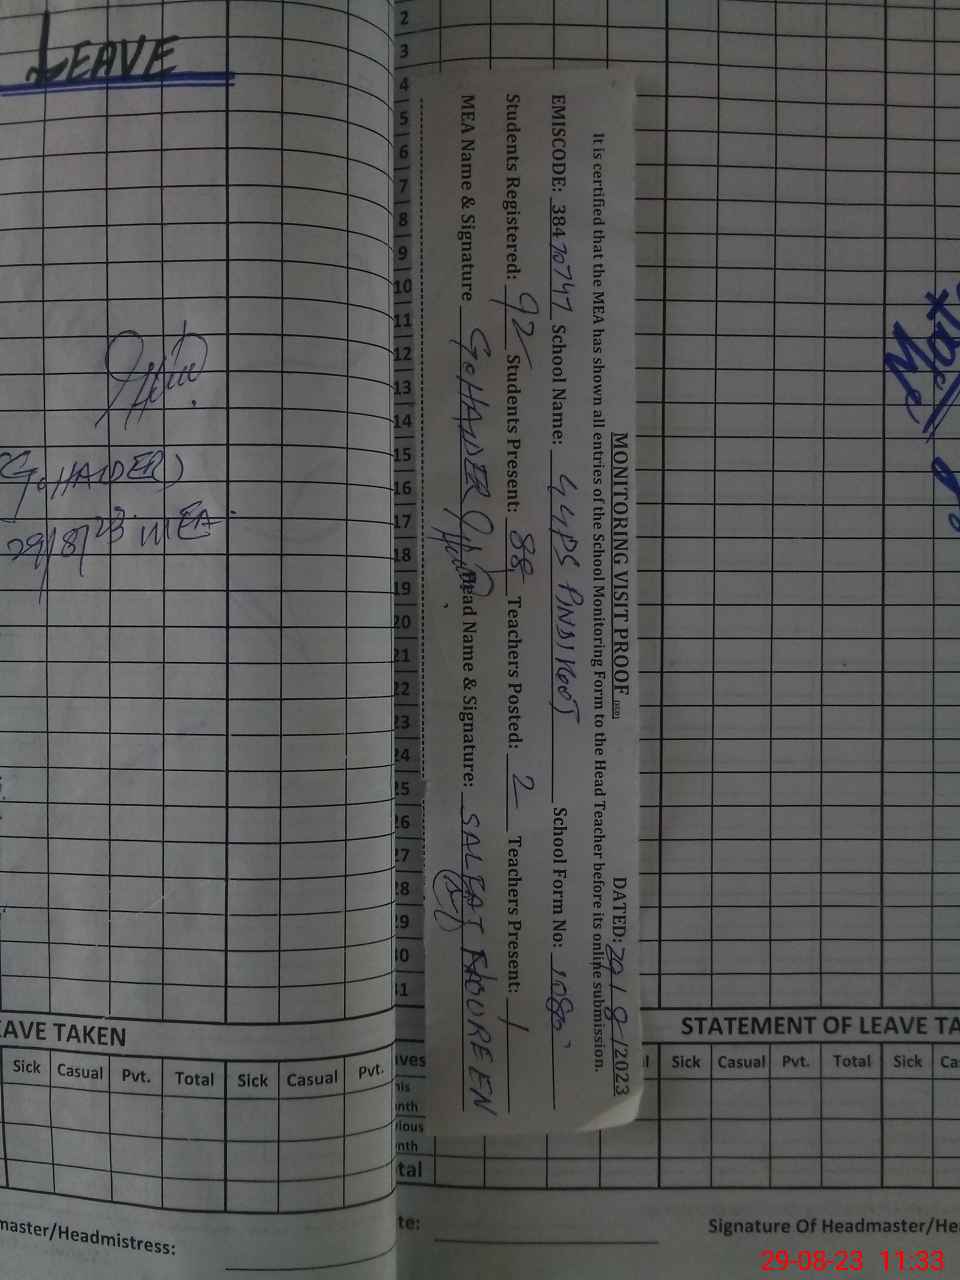 LEAVE
(G. HAIDER)
29/8/23 MEA
MONITORING VISIT PROOF DATED: 29/8/2023
It is certified that the MEA has shown all entries of the School Monitoring Form to the Head Teacher before its online submission.
EMISCODE: 38470747 School Name: GGPS PINDI KOOT School Form No: 1080
Students Registered: 92 Students Present: 88 Teachers Posted: 2 Teachers Present: 1
MEA Name & Signature G. HAIDER Head Name & Signature: NOUREEN
2
3
4
5
6
7
8
9
10
11
12
13
14
15
16
17
18
19
20
21
22
23
24
25
26
27
28
29
30
31
EAVE TAKEN
Sick Casual Pvt. Total Sick Casual Pvt.
master/Headmistress:
STATEMENT OF LEAVE TA
Sick Casual Pvt. Total Sick Ca
ves
his
nth
vious
nth
tal
te:
Signature Of Headmaster/He
29-08-23 11:33